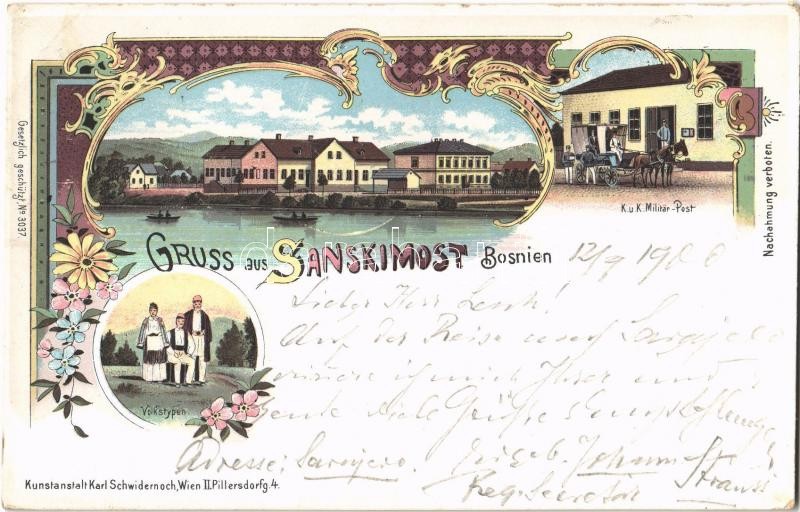 K. u. K. Militär-Post
Gesetzlich geschützt, No 3037.
Nachahmung verboten.
GRUSS aus SANSKIMOST Bosnien 12/9 1900
Lieber Herr
Auf der Reise nach Sarajevo
ich mich Ihrer und
viele Grüße
Adresse: Sarajevo. Johann Strauss
Reg. Secretär
Volkstypen
Kunstanstalt Karl Schwidernoch, Wien II. Pillersdorfg. 4.